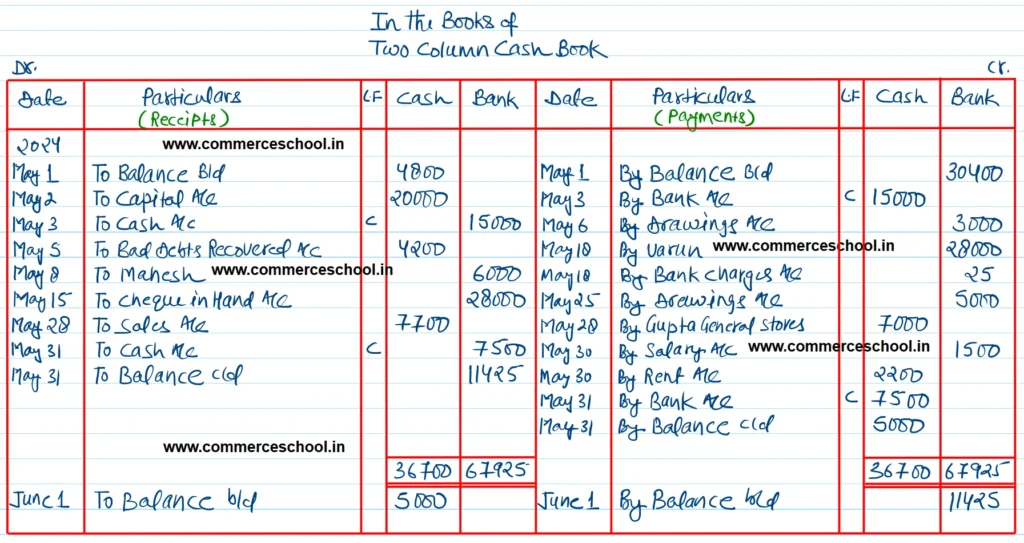 In the Books of
Two Column Cash Book
Dr. Cr.
Date Particulars LF Cash Bank Date Particulars LF Cash Bank
(Receipts) (Payments)
2024 www.commerceschool.in
May 1 To Balance b/d 4800 May 1 By Balance b/d 30400
May 2 To Capital A/c 20000 May 3 By Bank A/c C 15000
May 3 To Cash A/c C 15000 May 6 By Drawings A/c 3000
May 5 To Bad Debts Recovered A/c 4200 May 18 By Varun www.commerceschool.in 28000
May 8 To Mahesh www.commerceschool.in 6000 May 18 By Bank charges A/c 25
May 15 To Cheque in Hand A/c 28000 May 25 By Drawings A/c 5000
May 28 To Sales A/c 7700 May 28 By Gupta General Stores 7000
May 31 To Cash A/c C 7500 May 30 By Salary A/c www.commerceschool.in 1500
May 31 To Balance c/d 11425 May 30 By Rent A/c 2200
May 31 By Bank A/c C 7500
May 31 By Balance c/d 5000
www.commerceschool.in
36700 67925 36700 67925
June 1 To Balance b/d 5000 June 1 By Balance b/d 11425